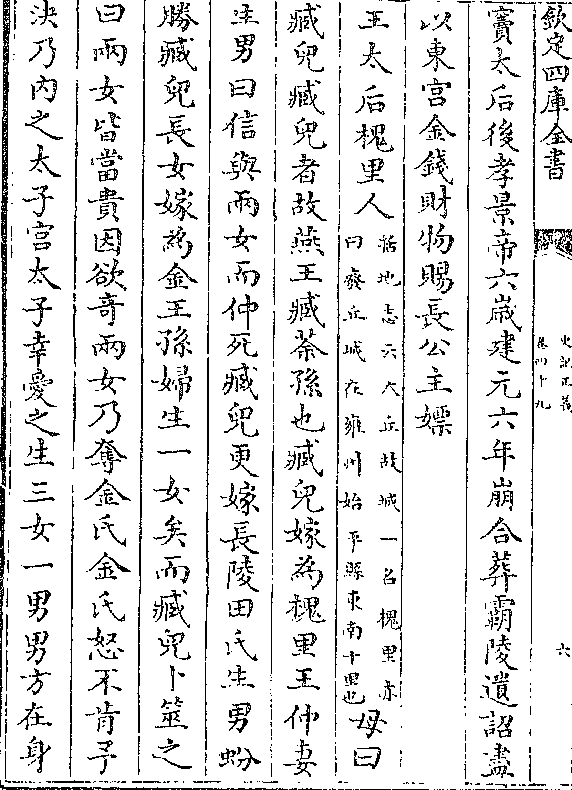 欽定四庫全書
史記正義
卷四十九
六
竇太后後孝景帝六歲建元六年崩合葬霸陵遺詔盡
以東宮金錢財物賜長公主嫖
王太后槐里人括地志云犬丘故城一名槐里亦曰廢丘城在雍州始平縣東南十里也母曰
臧兒臧兒者故燕王臧荼孫也臧兒嫁為槐里王仲妻
生男曰信與兩女而仲死臧兒更嫁長陵田氏生男蚡
勝臧兒長女嫁為金王孫婦生一女矣而臧兒卜筮之
曰兩女皆當貴因欲奇兩女乃奪金氏金氏怒不肯予
決乃內之太子宮太子幸愛之生三女一男男方在身